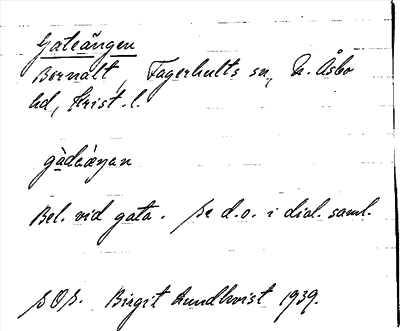 Gateängen
Bernalt, Fagerhults sn, N. Åsbo
hd, Krist. l.
gàdaàŋan
Bel. vid gata. Se d.o. i dial. saml.
SOS. Birgit Lundkvist 1939.